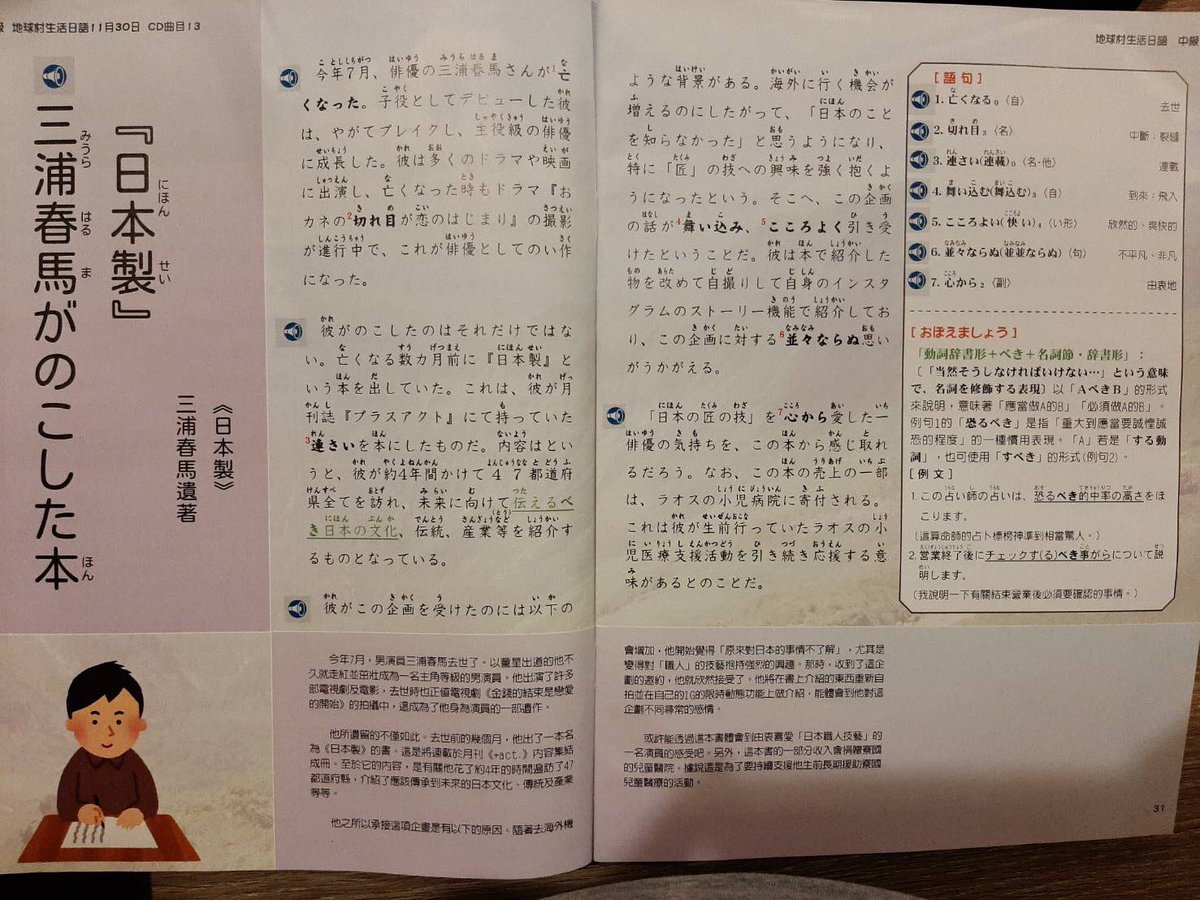 級 地球村生活日語11月30日 CD曲目13
『日本製』
三浦春馬がのこした本
《日本製》
三浦春馬遺著
今年7月、俳優の三浦春馬さんが1亡
くなった。子役としてデビューした彼
は、やがてブレイクし、主役級の俳優
に成長した。彼は多くのドラマや映画
に出演し、亡くなった時もドラマ『お
カネの2切れ目が恋のはじまり』の撮影
が進行中で、これが俳優としてのい作
になった。
彼がのこしたのはそれだけではな
い。亡くなる数カ月前に『日本製』と
いう本を出していた。これは、彼が月
刊誌『プラスアクト』にて持っていた
3連さいを本にしたものだ。内容はとい
うと、彼が約4年間かけて47都道府
県全てを訪れ、未来に向けて伝えるべ
き日本の文化、伝統、産業等を紹介す
るものとなっている。
彼がこの企画を受けたのには以下の
ような背景がある。海外に行く機会が
増えるのにしたがって、「日本のこと
を知らなかった」と思うようになり、
特に「匠」の技への興味を強く抱くよ
うになったという。そこへ、この企画
の話が4舞い込み、5こころよく引き受
けたということだ。彼は本で紹介した
物を改めて自撮りして自身のインスタ
グラムのストーリー機能で紹介してお
り、この企画に対する6並々ならぬ思い
がうかがえる。
「日本の匠の技」を7心から愛した一
俳優の気持ちを、この本から感じ取れ
るだろう。なお、この本の売上の一部
は、ラオスの小児病院に寄付される。
これは彼が生前行っていたラオスの小
児医療支援活動を引き続き応援する意
味があるとのことだ。
地球村生活日語 中級
[語句]
1. 亡くなる0(自) 去世
2. 切れ目3(名) 中斷;裂縫
3. 連さい(連載)0(名·他) 連載
4. 舞い込む(舞込む)3(自) 到來;飛入
5. こころよい(快い)4(い形) 欣然的、爽快的
6. 並々ならぬ(並並ならぬ)(句) 不平凡、非凡
7. 心から2(副) 由衷地
[おぼえましょう]
「動詞辞書形+べき+名詞節·辞書形」:
〔「当然そうしなければいけない…」という意味
で、名詞を修飾する表現〕以「AべきB」的形式
來說明，意味著「應當做A的B」「必須做A的B」。
例句1的「恐るべき」是指「重大到應當要誠惶誠
恐的程度」的一種慣用表現。「A」若是「する動
詞」，也可使用「すべき」的形式(例句2)。
[例文]
1.この占い師の占いは、恐るべき的中率の高さをほ
こります。
(這算命師的占卜標榜神準到相當驚人。)
2.営業終了後にチェックす(る)べき事がらについて説
明します。
(我說明一下有關結束營業後必須要確認的事情。)
今年7月，男演員三浦春馬去世了。以童星出道的他不
久就走紅並茁壯成為一名主角等級的男演員。他出演了許多
部電視劇及電影，去世時也正值電視劇《金錢的結束是戀愛
的開始》的拍攝中，還成為了他身為演員的一部遺作。
他所遺留的不僅如此。去世前的幾個月，他出了一本名
為《日本製》的書。這是將連載於月刊《+act.》內容集結
成冊。至於它的內容，是有關他花了約4年的時間遍訪了47
都道府縣，介紹了應該傳承到未來的日本文化、傳統及產業
等等。
他之所以承接這項企畫是有以下的原因。隨著去海外機
會增加，他開始覺得「原來對日本的事情不了解」，尤其是
變得對「職人」的技藝抱持強烈的興趣。那時，收到了這企
劃的邀約，他就欣然接受了。他將在書上介紹的東西重新自
拍並在自己的IG的限時動態功能上做介紹，能體會到他對這
企劃不同尋常的感情。
或許能透過這本書體會到由衷喜愛「日本職人技藝」的
一名演員的感受吧。另外，這本書的一部分收入會捐贈寮國
的兒童醫院。據說這是為了要持續支援他生前長期援助寮國
兒童醫療的活動。
31